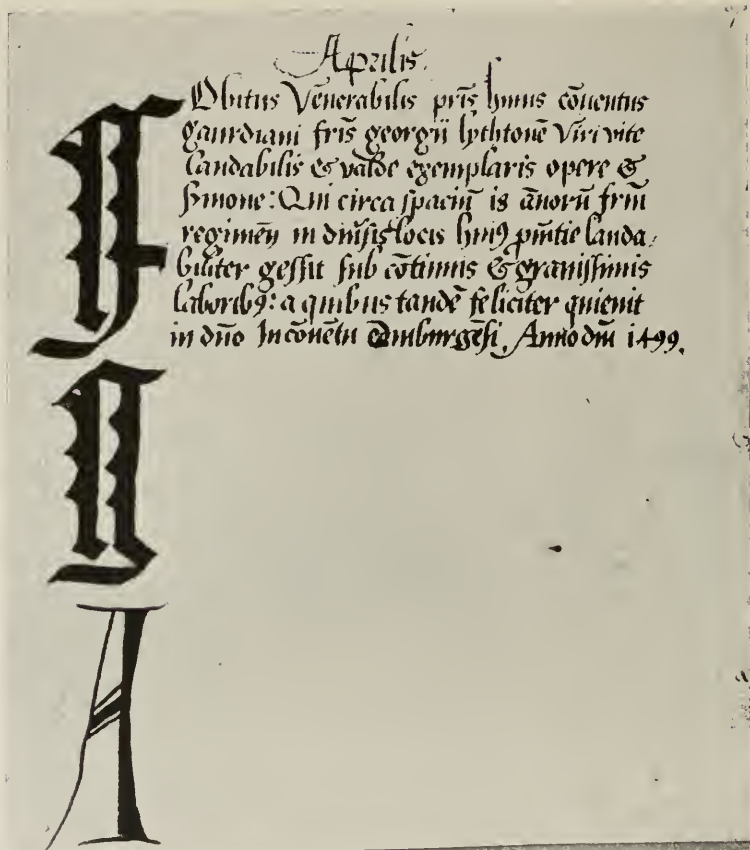 Aprilis.
Obitus Venerabilis pr̄is huius cōuentus
gaurdiani fr̄is georgii lythtonē Viri vite
laudabilis & valde exemplaris opere &
s̄rmone: Qui circa spaciū is ānorū fr̄m
regimēn in diūsis locis huiꝰ puītie lauda,
biliter gessit sub cōtinuis & grauissimis
laboribꝰ: a quibus tandē feliciter quieuit
in dn̄o In cōuētu Edinburgēsi, Anno dnī 1499.
F
G
A